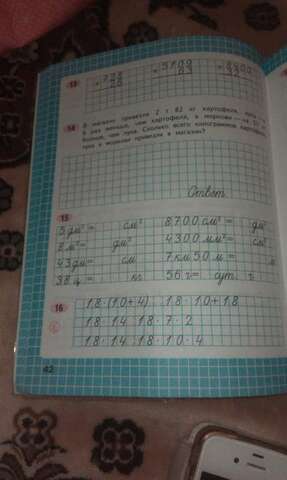 13
× 5700
63
14 В магазин привезли 2 т 82 кг картофеля, лука — в
раз меньше, чем картофеля, а моркови — на
больше, чем лука. Сколько всего килограммов картофеля,
лука и моркови привезли в магазин?
Ответ
15
5 дм² = см² 8700 см² = дм²
8 м² = дм² 4300 мм² = см²
43 дм = см 7 км 50 м = м
38 ц = кг 56 ч = сут. ч
16
18 · (10 + 4) 18 · 10 + 18
18 · 14 18 · 7 · 2
18 · 14 18 · 10 · 4
42